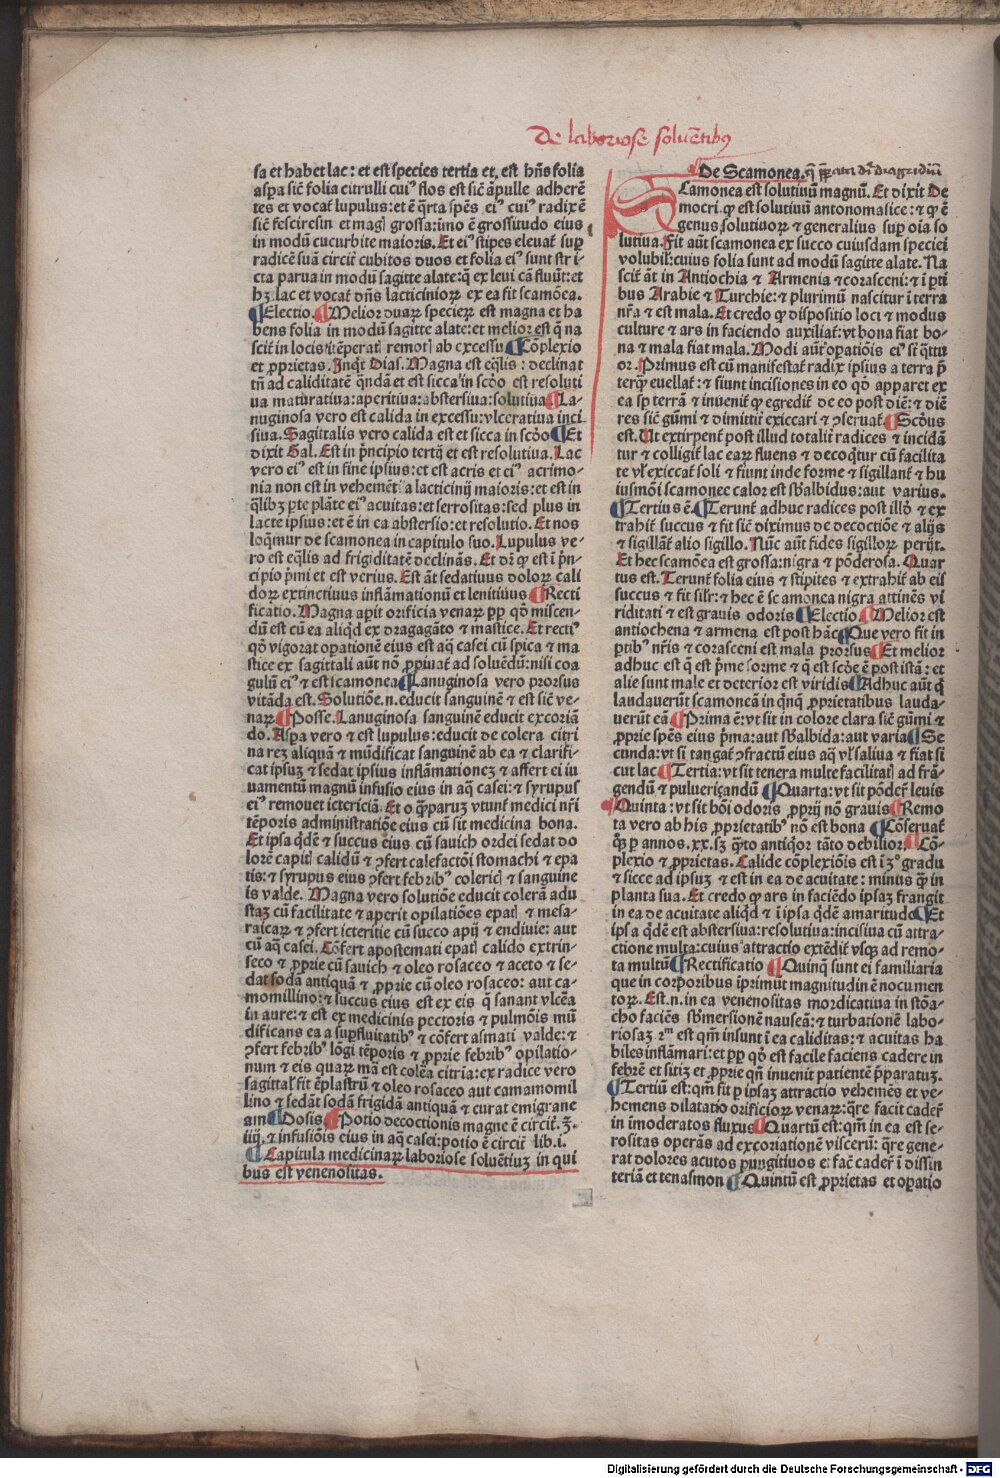 De laboriose soluẽtibꝰ
sa et habet lac: et est species tertia et. est hñs folia
aspa sic̃ folia citrulli cuiꝰ flos est sic̃ ãpulle adherẽ
tes et vocat̃ lupulus: et ẽ q̃rta spẽs. eiꝰ cuiꝰ radix ẽ
sic̃ fesciresin et mag̃ grossa: imo ẽ grossitudo eius
in modũ cucurbite maioris. Et eiꝰ stipes eleuat̃ sup̱
radicẽ suã circit̃ cubitos duos et folia eiꝰ sunt stri
cta parua in modũ sagitte alate: q̃ ex leui cã fluũt: et
hꝫ lac et vocat̃ dñs lacticinioꝝ ex ea fit scamõea.
¶Electio. ¶Melior duaꝝ specieꝝ est magna et ha
bens folia in modũ sagitte alate: et melior est q̃ na
scit̃ in locis itẽperat̃ remot̃ ab excessu ¶Cõplexio
et ꝓprietas. Inq̃t Dias. Magna est eq̃lis: declinat
tñ ad caliditatẽ q̃ndã et est sicca in scðo est resoluti
ua maturatiua: aperitiua: abstersiua: solutiua ¶La-
nuginosa vero est calida in excessu: vlceratiua inci
siua. Sagittalis vero calida est et sicca in scðo ¶Et
dixit Gal. Est in p̃ncipio tertij et est resolutiua. Lac
vero eiꝰ est in fine ipsius: et est acris et eiꝰ acrimo-
nia non est in vehemẽtia lacticinij maioris: et est in
q̃libꝫ pte plãte eiꝰ acuitas: et serrositas: sed plus in
lacte ipsius: et ẽ in ea abstersio: et resolutio. Et nos
loq̃mur de scamonea in capitulo suo. Lupulus ve-
ro est eq̃lis ad frigiditatẽ declinãs. Et dr̃ ꝙ est ĩ p̃n-
cipio p̃mi et est verius. Est ãt sedatiuus doloꝝ cali
doꝝ extinctiuus inflãmationũ et lenitiuus ¶Recti
ficatio. Magna ap̱it orificia venaꝝ pp̱ qð miscen-
dũ est cũ ea aliq̃d ex dragagãto ⁊ mastice. Et rectiꝰ
qð vigorat opationẽ eius est aq̃ casei cũ spica ⁊ ma
stice ex sagittali aũt nõ ꝓpinat̃ ad soluẽdũ: nisi coa
gulũ eiꝰ ⁊ est scamonea ¶Lanuginosa vero prorsus
vitãda est. Solutiõe. n. educit sanguinẽ ⁊ est sic̃ ve-
naꝝ ¶Posse. Lanuginosa sanguinẽ educit excoriã
do. Aspa vero ⁊ est lupulus: educit de colera citri
na reꝫ aliquã ⁊ mũdificat sanguinẽ ab ea ⁊ clarifi-
cat ipsuꝫ ⁊ sedat ipsius inflãmationeꝫ ⁊ affert ei iu
uamentũ magnũ infusio eius in aq̃ casei: ⁊ syrupus
eiꝰ remouet ictericiã. Et o q̃ꝫparuꝫ vtunt̃ medici nr̃i
tẽporis administratiõe eius cũ sit medicina bona.
Et ipsa q̃dẽ ⁊ succus eius cũ sauich ordei sedat do
lorẽ capit̃ calidũ ⁊ ꝯfert calefactõi stomachi ⁊ epa
tis: ⁊ syrupus eius ꝯfert febribꝰ coleric̃ ⁊ sanguine
is valde. Magna vero solutiõe educit colerã adu
staꝫ cũ facilitate ⁊ aperit opilatiões epat̃ ⁊ mesa-
raicaꝝ ⁊ ꝯfert icteritie cũ succo apij ⁊ endiuie: aut
cũ aq̃ casei. Cõfert apostemati epat̃ calido extrin-
seco ⁊ ꝓprie cũ sauich ⁊ oleo rosaceo ⁊ aceto ⁊ se-
dat soda antiquã ⁊ ꝓprie cũ oleo rosaceo: aut ca-
momillino: ⁊ succus eius est ex eis q̃ sanant vlcẽa
in aure: ⁊ est ex medicinis pectoris ⁊ pulmõis mũ
dificans ea a sup̱fluitatibꝰ ⁊ cõfert asmati valde: ⁊
ꝯfert febribꝰ lõgi tẽporis ⁊ ꝓprie febribꝰ opilatio-
num ⁊ eis quaꝝ mã est colẽa citria: ex radice vero
sagittal̃ fit ẽplastrũ ⁊ oleo rosaceo aut camamomil
lino ⁊ sedãt sodã frigidã antiquã ⁊ curat emigrane
am ¶Dosis ¶Potio decoctionis magne ẽ circit̃. ℥.
iiij. ⁊ infusiõis eius in aq̃ casei: potio ẽ circit̃ lib. i.
¶Capitula medicinaꝝ laboriose soluẽtiuꝫ in qui
bus est venenositas.
De Scamonea.
Scamonea est solutiuũ magnũ. Et dixit De
mocri. ꝙ est solutiuũ antonomasice: ⁊ ꝙ ẽ
genus solutiuoꝝ ⁊ generalius sup̱ oĩa so
lutiua. Fit aũt scamonea ex succo cuiusdam speciei
volubil̃: cuius folia sunt ad modũ sagitte alate. Na
scit̃ ãt in Antiochia ⁊ Armenia ⁊ corasceni: ⁊ ĩ p̱ti
bus Arabie ⁊ Turchie: ⁊ plurimũ nascitur ĩ terra
nr̃a ⁊ est mala. Et credo ꝙ dispositio loci ⁊ modus
culture ⁊ ars in faciendo auxiliat̃: vt bona fiat bo-
na ⁊ mala fiat mala. Modi aũt oꝑatiõis eiꝰ sĩ q̃ttu
or. Primus est cũ manifestat̃ radix ipsius a terra p̃
terꝙ euellat̃: ⁊ fiunt incisiones in eo qð apparet ex
ea sp̱ terrã ⁊ inuenit̃ ꝙ egredit̃ de eo post diẽ: ⁊ diẽ
res sic̃ gũmi ⁊ dimittit̃ exiccari ⁊ ꝯseruat̃ ¶Scðus
est. Ut extirpent̃ post illud totalit̃ radices ⁊ incidã
tur ⁊ colligit̃ lac eaꝝ fluens ⁊ decoq̃tur cũ facilita
te vl̃ exiccat̃ soli ⁊ fiunt inde forme ⁊ sigillant̃ ⁊ hu
iusmõi scamonee calor est sb̃albidus: aut varius.
¶Tertius ẽ. ¶Terunt̃ adhuc radices post illð ⁊ ex
trahit̃ succus ⁊ fit sic̃ diximus de decoctiõe ⁊ alijs
⁊ sigillãt̃ alio sigillo. Nũc aũt fides sigilloꝝ perijt.
Et hec scamõea est grossa: nigra ⁊ põderosa. Quar
tus est. Terunt̃ folia eius ⁊ stipites ⁊ extrahit̃ ab eis
succus ⁊ fit silr̃: ⁊ hec ẽ scamonea nigra attinẽs vi
riditati ⁊ est grauis odoris ¶Electio. ¶Melior est
antiochena ⁊ armena est post hãc ¶Que vero fit in
p̱tibꝰ nr̃is ⁊ corasceni est mala prorsus ¶Et melior
adhuc est q̃ est p̃me forme ⁊ q̃ est scðe ẽ post istã: et
alie sunt male et deterior est viridis ¶Adhuc aũt q̃
laudauerũt scamoneã in q̃nq̃ ꝓprietatibus lauda-
uerũt eã ¶Prima ẽ: vt sit in colore clara sic̃ gũmi ⁊
ꝓprie spẽs eius p̃ma: aut sb̃albida: aut varia ¶Se
cunda: vt si tangat̃ ꝯfractũ eius aq̃ vl̃ saliua ⁊ fiat si
cut lac ¶Tertia: vt sit tenera multe facilitat̃ ad frã-
gendũ ⁊ pulueriçandũ ¶Quarta: vt sit põder̃ leuis
¶Quinta: vt sit bõi odoris ꝓprij nõ grauis ¶Remo
ta vero ab his ꝓprietatibꝰ nõ est bona ¶Cõseruat̃
q̃ꝫ p̱ annos. xx. sꝫ q̃ꝫto antiq̃or tãto debilior. ¶Cõ-
plexio ⁊ ꝓprietas. Calide cõplexiõis est ĩ ꝫᵒ gradu
⁊ sicce ad ipsuꝫ ⁊ est in ea de acuitate: minus q̃ꝫ in
planta sua. Et credo ꝙ ars in faciẽdo ipsaꝫ frangit
in ea de acuitate aliq̃d ⁊ ĩ ipsa q̃dẽ amaritudo ¶Et
ipsa q̃dẽ est abstersiua: resolutiua: incisiua cũ attra-
ctione multa: cuius attractio extẽdit̃ vsqꝫ ad remo-
ta multũ ¶Rectificatio ¶Quinqꝫ sunt ei familiaria
que in corporibus ĩprimũt magnitudinẽ nocumen
toꝝ. Est. n. in ea venenositas mordicatiua in stõa-
cho faciẽs sb̃mersionẽ nauseã: ⁊ turbationẽ labo-
riosaꝫ 2ᵐ est qm̃ insunt ĩ ea caliditas: ⁊ acuitas ha
biles inflãmari: et pp̱ qð est facile faciens cadere in
febrẽ et sitiꝫ et ꝓprie qñ inuenit patientẽ p̃paratuꝫ.
¶Tertiũ est: qm̃ fit p̱ ipsaꝫ attractio vehemẽs et ve-
hemens dilatatio orificioꝝ venaꝝ: q̃re facit cader̃
in ĩmoderatos fluxus ¶Quartũ est: qm̃ in ea est se-
rositas operãs ad excoriationẽ visceruꝫ: q̃re gene-
rat dolores acutos pungitiuos e: fac̃ cader̃ ĩ dissin
teriã et tenasmon ¶Quintũ est ꝓprietas et oꝑatio
Digitalisierung gefördert durch die Deutsche Forschungsgemeinschaft - DFG